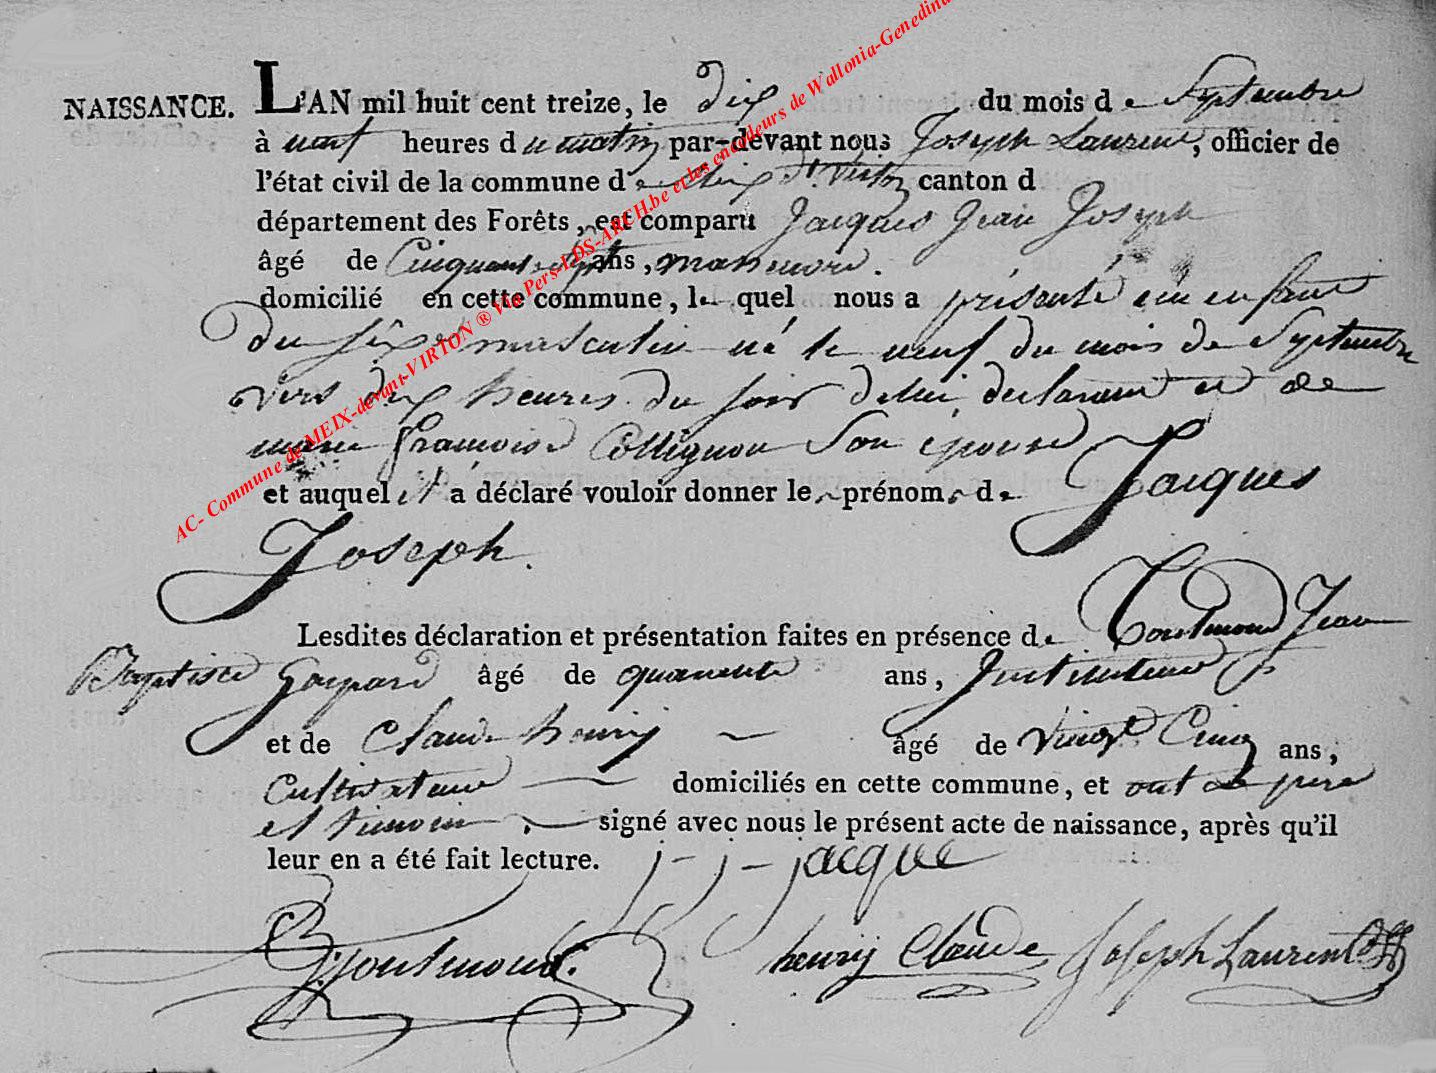 NAISSANCE. L'AN mil huit cent treize, le dix du mois de Septembre
à neuf heures du matin par-devant nous Joseph Laurent, officier de
l'état civil de la commune de Meix dt. Virton canton d
département des Forêts, est comparu Jacques Jean Joseph
âgé de Cinquante sept ans, manœuvre.
domicilié en cette commune, lequel nous a présenté un enfant
du sexe masculin né le neuf du mois de Septembre
vers dix heures du soir de lui déclarant et de
marie françoise Collignon son épouse
et auquel il a déclaré vouloir donner les prénoms de Jacques
Joseph.
Lesdites déclaration et présentation faites en présence de Toutmond Jean
Baptiste Gaspard âgé de quarente ans, Instituteur
et de Claude henry âgé de Vingt Cinq ans,
Cultivateur domiciliés en cette commune, et ont le pere
et timoin signé avec nous le présent acte de naissance, après qu'il
leur en a été fait lecture. j-j-jacque
Toutmond. henrij Claude Joseph Laurent
AC- Commune de MEIX-devant-VIRTON ® Via Pers-LDS-ARCH.be et les encodeurs de Wallonia-Genedina